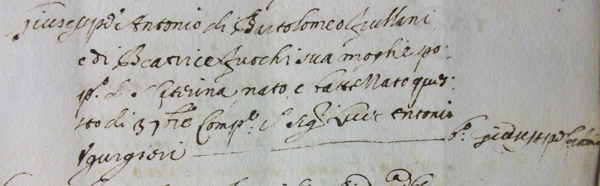 Giuseppe di Antonio di Bartolomeo Giullani
e di Beatrice Fuochi sua moglie po:
pº. di S. Caterina nato e battezzato ques:
sto di 31 Compº. il Sigr Luis Antonio
Ugurgieri